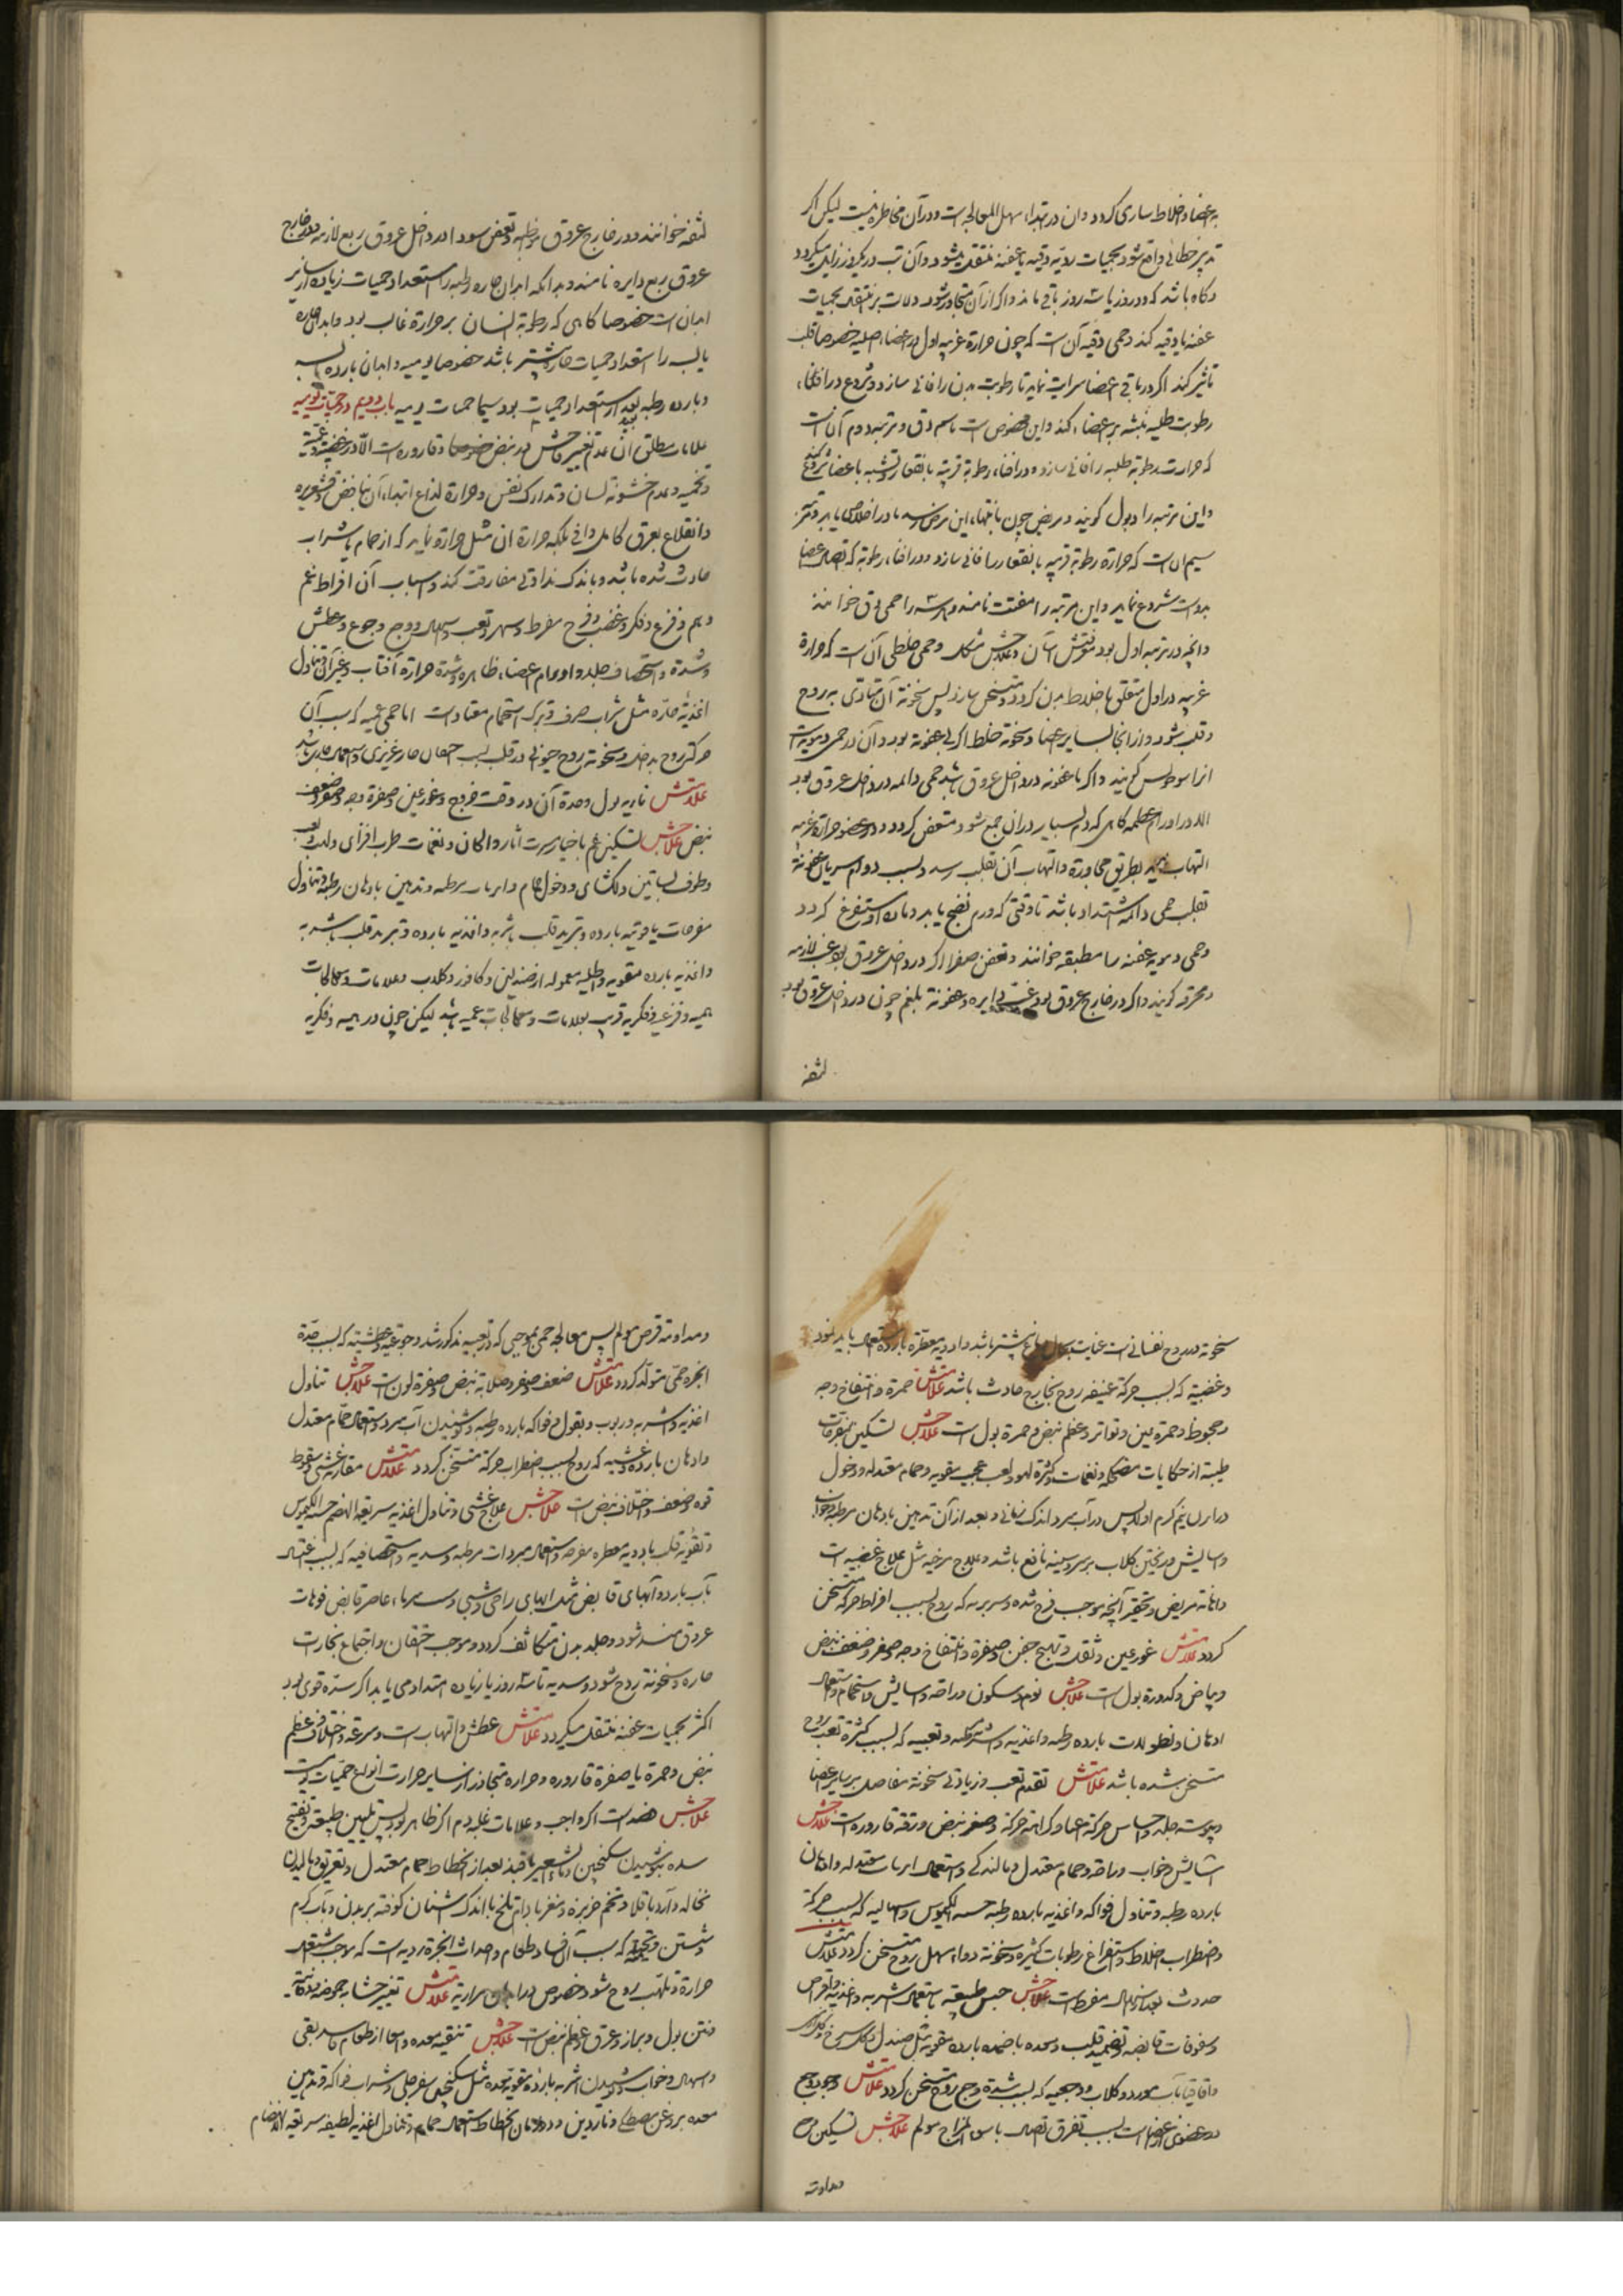 باعضا و اخلاط ساری کردد و ان در ابتدا سهل المعالجه است و در آن مخاطره نیست لیکن اکر
تدبیر خطائی واقع شود بحمیات ردیه دقیه یا عفنه منتقل میشود و آن تب در یکروز زایل میکردد
و کاه باشد که دو روز یا سه روز باقی ماند و اکر از آن متجاوز شود دلالت بر منتقل بحمیات
عفنه یا دقیه کند و حمی دقیه آن است که چون حرارة غریبه اول در اعضاء اصلیه خصوصا قلب
تاثیر کند اکر در باقی اعضا سرایت نماید تا رطوبت بدن را فانی سازد و شروع در افناء
رطوبت طلیه منبثه بر اعضاء کند و این مخصوص است باسم دق و مرتبه دوم آن است
که حرارت رطوبة طلیه را فانی سازد و در افناء رطوبة قریبة بانعقاد و تشبه باعضا شروع کند
و این مرتبه را ذبول کویند و مریض چون بانتهاء این مرض رسد نادرا خلاص یابد و مرتبه
سیم ان است که حرارة رطوبة قریبه بانعقاد را فانی سازد و در افناء رطوبة که اتصال اعضا
بدوست شروع نماید و این مرتبه را مفتت نامند و هر سه را حمی دق خوانند
و انچه در مرتبه اول بود شناختنش آسان و علاجش مشکل و حمی خلطی آن است که حرارة
غریبه در اول متعلق باخلاط بدن کردد و متسخن سازد پس سخونة آن متادی به روح
و قلب شود و از انجا بسایر اعضا و سخونة خلط اکر بی عفونة بود و آن در حمی دمویه است
انرا سونوخس کویند و اکر با عفونة در داخل عروق باشد حمی دائمه در داخل عروق بود
الا در اورام عظیمه کاهی که دم بسیار در ان جمع شود و متعفن کردد و در عضو حرارة غریبه
التهاب نماید بطریق مجاورة و التهاب آن بقلب رسد و بسبب دوام سریان عفونة
بقلب حمی دائمه اشتداد باشد تا وقتی که ورم نضج یابد و ماده او مستفرغ کردد
و حمی دمویه عفنه را مطبقه خوانند و تعفن صفرا اکر در داخل عروق بود غب لازمه
و محرقه کویند و اکر در خارج عروق بود غب دایره و عفونة بلغم چون در داخل عروق بود
لثقه
لثقه خوانند و در خارج عروق مواظبه و تعفن سودا در داخل عروق ربع لازمه و در خارج
عروق ربع دایره نامند و بدانکه ابدان حاره رطبه را استعداد حمیات زیاده از سایر
ابدان است خصوصا کاهی که رطوبة ایشان بر حرارة غالب بود و ابدان حاره
یابسه را استعداد حمیات حاره بیشتر باشد خصوصا یومیه و ابدان بارده یابسه
و بارده رطبه بعید از استعداد حمیات بود سیما حمیات یومیه باب دویم در حمیات یومیه
علامات مطلق ان عدم تغییر فاحش در نبض و قاروره است الا در غضبیه و غمیه
و تخمیه و عدم خشونة لسان و تدارک نفس و حرارة لذاع ابتداء آن بنافض و قشعریره
و انقلاع بعرق کامل وافی بلکه حرارة ان مثل حرارة نماید که از حمام یا شراب
حادث شده باشد و باندک نداوتی مفارقت کند و اسباب آن افراط غم
و هم و فزع و فکر و غضب و فرح مفرط و سهر و تعب و اسهال و وجع و جوع و عطش
و سُدّة و استحصاف جلد و اورام اعضاء ظاهره و شدة حرارة آفتاب و غیر آن و تناول
اغذیة حاره مثل شراب صرف و ترک استحمام معتاد است اما حمی غمیه که سبب آن
حرکة روح بداخل و سخونة روح حیوانی در قلب بسبب احتقان حار غریزی و اشتعال حادث باشد
علامتش ناریه بول و حدة آن در وقت خروج و غور عین و صفرة وجه و صغر و ضعف
نبض علاجش تسکین غم باخبار مسرت آثار و الحان و نغمات طرب افزای و لهو و لعب
و طوف بساتین دلکشای و دخول حمام و ابزنات مرطبه و تدهین بادهان رطبه و تناول
مفرحات یاقوتیه بارده و تبرید قلب باشربه و اغذیه بارده و تبرید قلب باشربه
و اغذیه بارده مقویه و اطلیه معموله از صندلین و کافور و کلاب و علامات و معالجات
همیه و فزعیه و فکریه قریب بعلامات و معالجات غمیه باشد لیکن چون در همیه و فکریه
سخونة در روح نفسانی است عنایت بحال دماغ بیشتر باشد و ادویه معطره بارده استعمال باید نمود
و غضبیه که بسبب حرکة عنیفه روح بخارج حادث باشد علامتش حمرة و انتفاخ وجه
و جحوظ و حمرة عین و تواتر و عظم نبض و حمرة بول است علاجش تسکین بمفرحات
طیبه از حکایات مضحکه و نغمات و کثرة لهو و لعب عجیب مقویه و حمام معتدله و دخول
در ابزن نیم کرم اولا پس در آب سرد اندک زمانی و بعد از آن تدهین بادهان مرطبه و خواب
و اسایش و ریختن کلاب بر سر و سینه نافع باشد و علاج فرحیه مثل علاج غضبیه است
و اهانة مریض و تحقیر آنچه موجب فرح شده و سهریه که روح بسبب افراط حرکة متسخن
کردد علامتش غور عین و ثقل و تهیج جفن و صفرة و انتفاخ وجه و صغر و ضعف نبض
و بیاض و کدورة بول است علاجش نوم و سکون و راحة و اسایش و استحمام و استعمال
ادهان و نطولات بارده رطبه و اغذیه و اشربه رطبه و تعبیه که بسبب کثرة تعب روح
متسخن شده باشد علامتش تقدم تعب و زیادتی سخونة مفاصل بر سایر اعضا
و یبوسة جلد و احساس حرکة اعیا و کراهة حرکة و صغر نبض و رقة قاروره است علاجش
اسایش و خواب و راحة و حمام معتدل و مالندکی و استعمال ابزنات معتدله و ادهان
بارده رطبه و تناول فواکه و اغذیه بارده رطبه حسنه الکیموس و اسهالیه که بسبب حرکة
و اضطراب اخلاط و استفراغ رطوبات کثیره و سخونة دواء مسهل روح متسخن کردد علامتش
حدوث بعد از اسهال مفرط است علاجش حبس طبیعة باستعمال اشربه و اغذیه و اقراص
و سفوفات قابضه و تضمید قلب و معده باضمده بارده مقویه مثل صندل و کل سرخ و کلنار
و اقاقیا بآب مورد و کلاب و وجعیه که بسبب شدة وجع روح متسخن کردد علامتش وجود وجع
در عضوی از اعضا است بسبب تفرق اتصال یا سوء المزاج مولم علاجش تسکین وجع
مداومة
و مداومة قرص مولم پس معالجه حمی بموجبی که در تعبیه مذکور شد و جوعیه و عطشیه که بسبب حدة
ابخرة حمی متولد کردد علامتش ضعف و صغر و صلابة نبض و صفرة لون است علاجش تناول
اغذیه و اشربه و ربوب و بقول و فواکه بارده رطبه و نوشیدن آب سرد و استعمال حمام معتدل
و ادهان بارده و غشییه که روح بسبب اضطراب حرکة متسخن کردد علامتش مقارنة غشی و سقوط
قوه و ضعف و اختلاف نبض است علاجش علاج غشی و تناول اغذیه سریعة الهضم حسنة الکیموس
و تقویة قلب بادویه معطره مفرحه و استعمال مبردات مرطبه و سدیه و استحصافیه که بسبب اغتسال
بآب بارد و آبهای قابض مثل ابهای زاجی و شبی و سرماء عاصر قابض فوهات
عروق منسد شود و جلد بدن متکاثف کردد و موجب احتقان و اجتماع بخارات
حاره و سخونة روح شود و سدیه تا سه روز یا زیاده امتداد می یابد اکر سدة قوی بود
اکثر بحمیات عفنه منتقل میکردد علامتش عطش و التهاب است و سرعة و اختلاف و عظم
نبض و حمرة یا صفرة قاروره و حرارة متجاوز از سایر حرارت انواع حمیات یومیه
علاجش فصد است اکر واجب و علامات غلبه دم اکر ظاهر بود پس تلیین طبیعة و تفتیح
سده بنوشیدن سکنجبین و ماء الشعیر با قند بعد از انحطاط حمام معتدل و تعریق و مالیدن
نخاله و آرد باقلا و تخم خربزه و مغز بادام تلخ با اندک اشنان کوفته بر بدن و بآب کرم
شستن و تخمیه که سبب آن فساد طعام و احداث ابخرة ردیه است که موجب اشتعال
حرارة و تلهب روح شود خصوص در ابدان مراریه علامتش تغیر جشا بحموضه یا دخانیة
و نتن بول و براز و عرق و عظم نبض است علاجش تنقیه معده و امعا از طعام فاسد بقی
و اسهال و خواب و نوشیدن اشربه بارده مقویه معده مثل سکنجبین سفرجلی و شراب فواکه و تدهین
معده بروغن مصطکی و ناردین و در زمان انحطاط استعمال حمام و تناول اغذیه لطیفه سریعة الانهضام